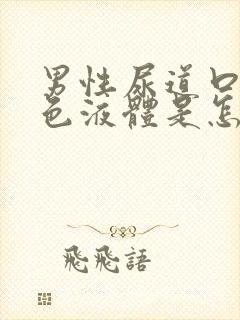 男性尿道口
色液體是怎
飛飛語